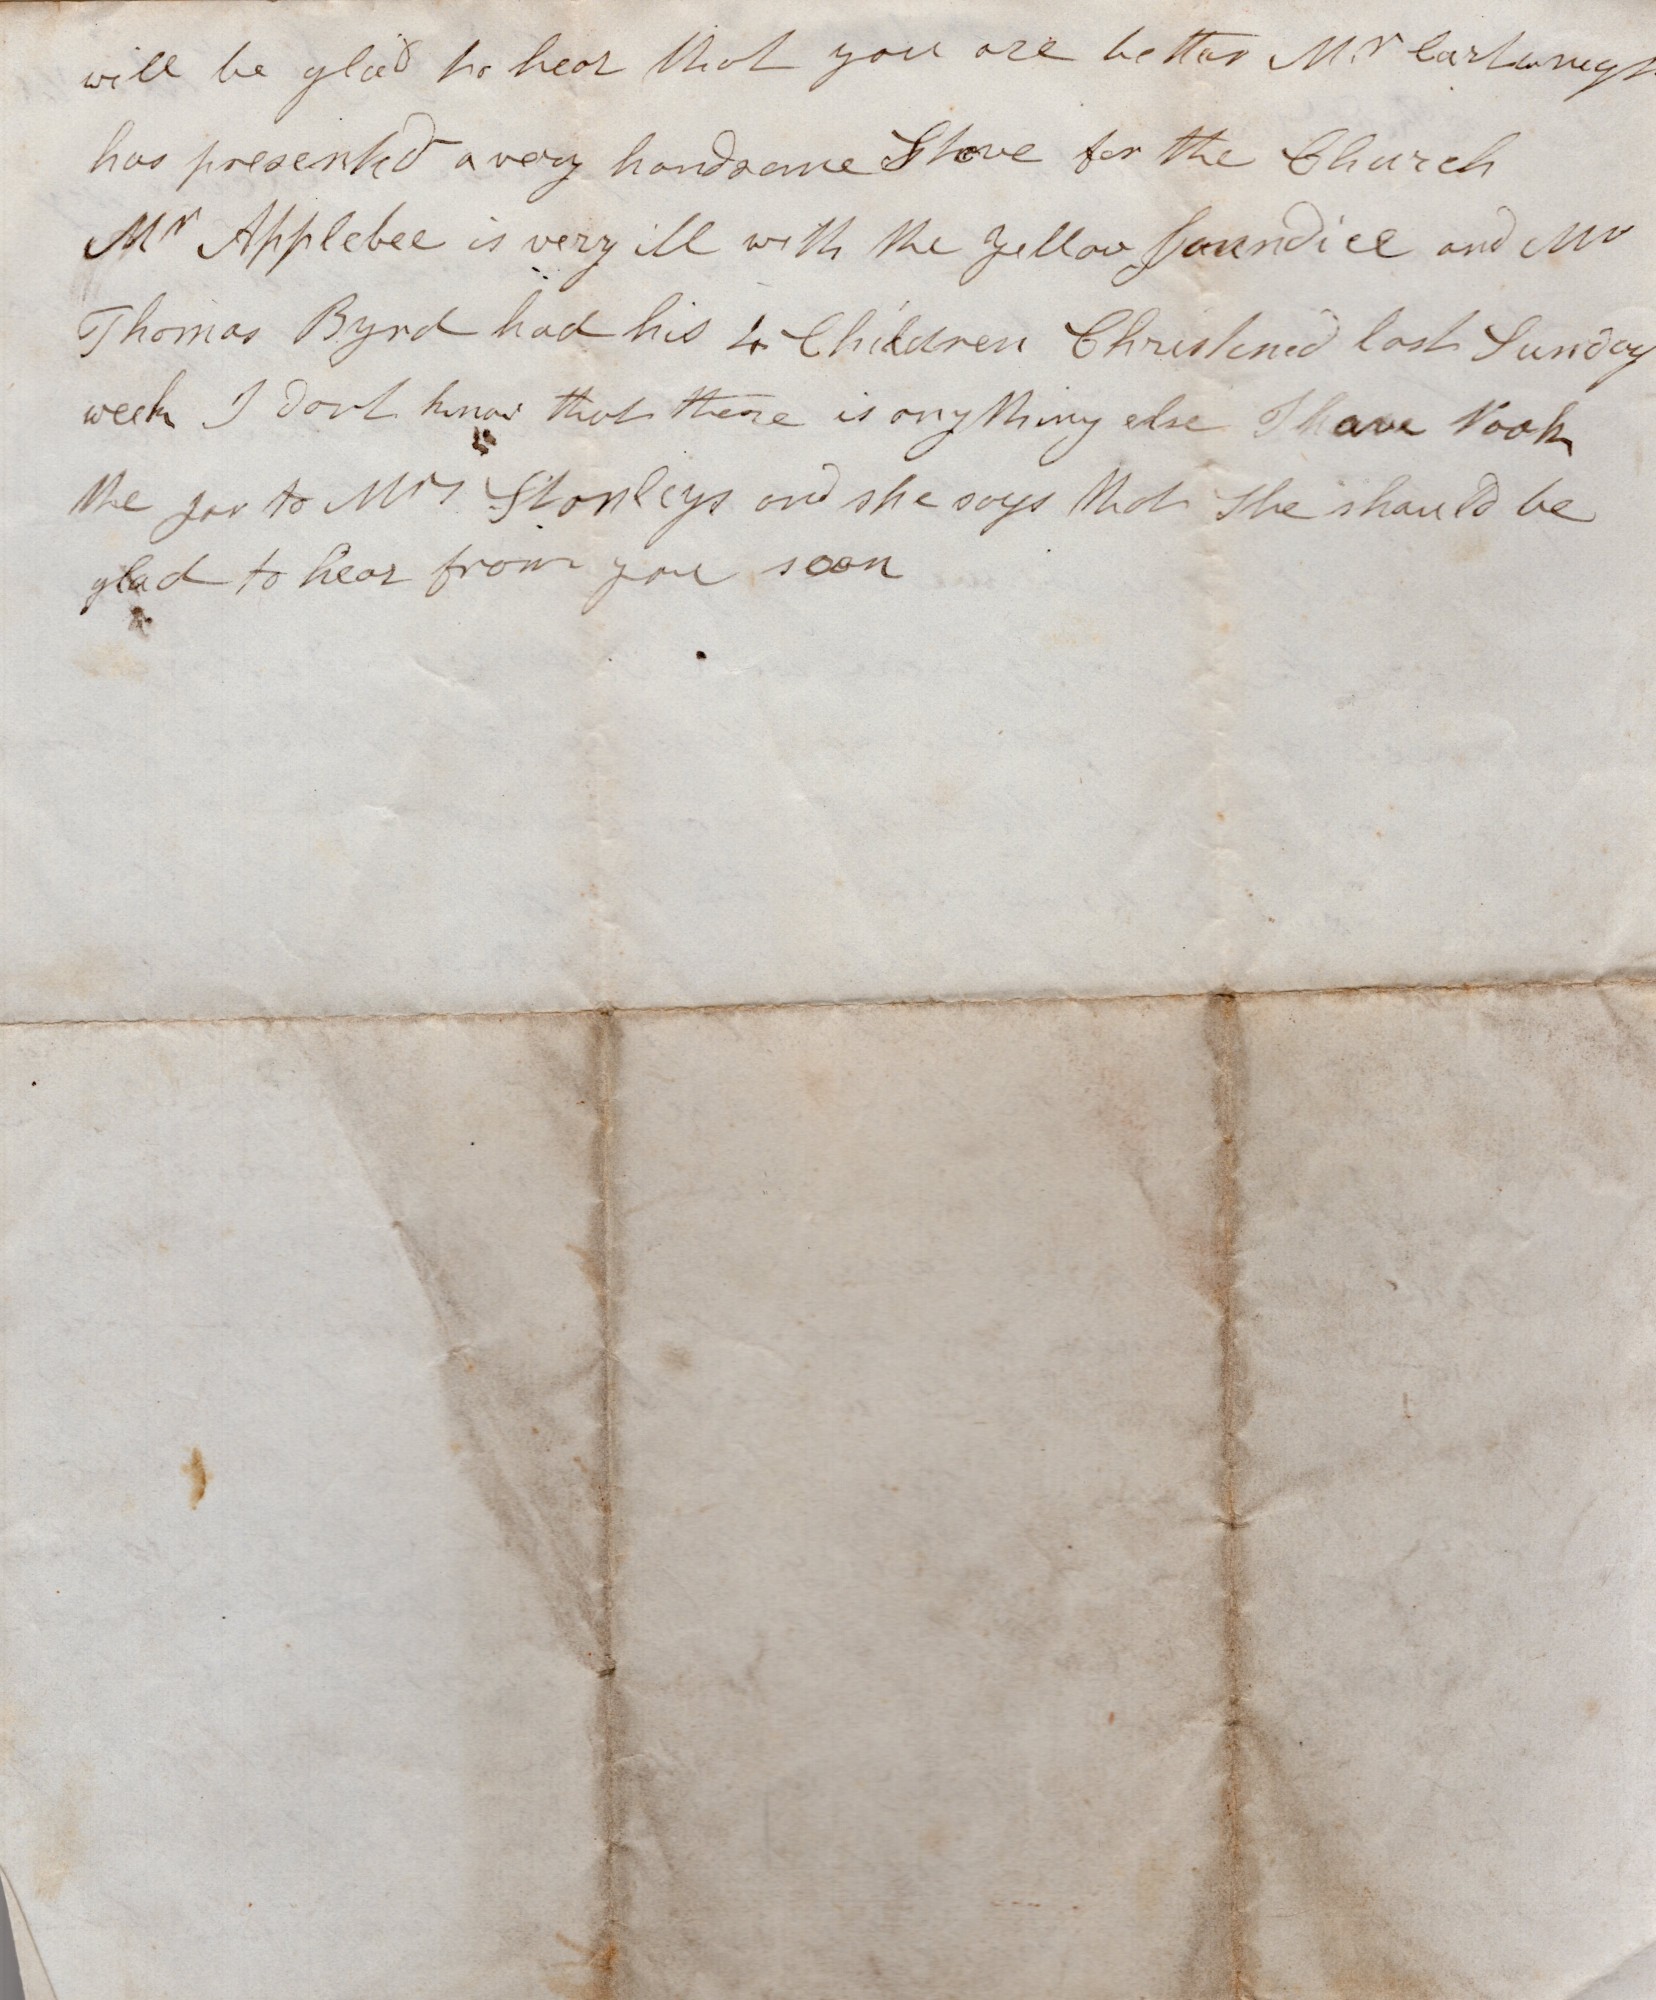 will be glad to hear that you are better Mr Cartwrigh
has presented a very handsome Stove for the Church
Mr Applebee is very ill with the yellow Jaundice and Mr
Thomas Byrd had his 4 Children Christened last Sunday
week I dont know that there is anything else I have took
the jar to Mrs Stanleys and she says that She should be
glad to hear from you soon